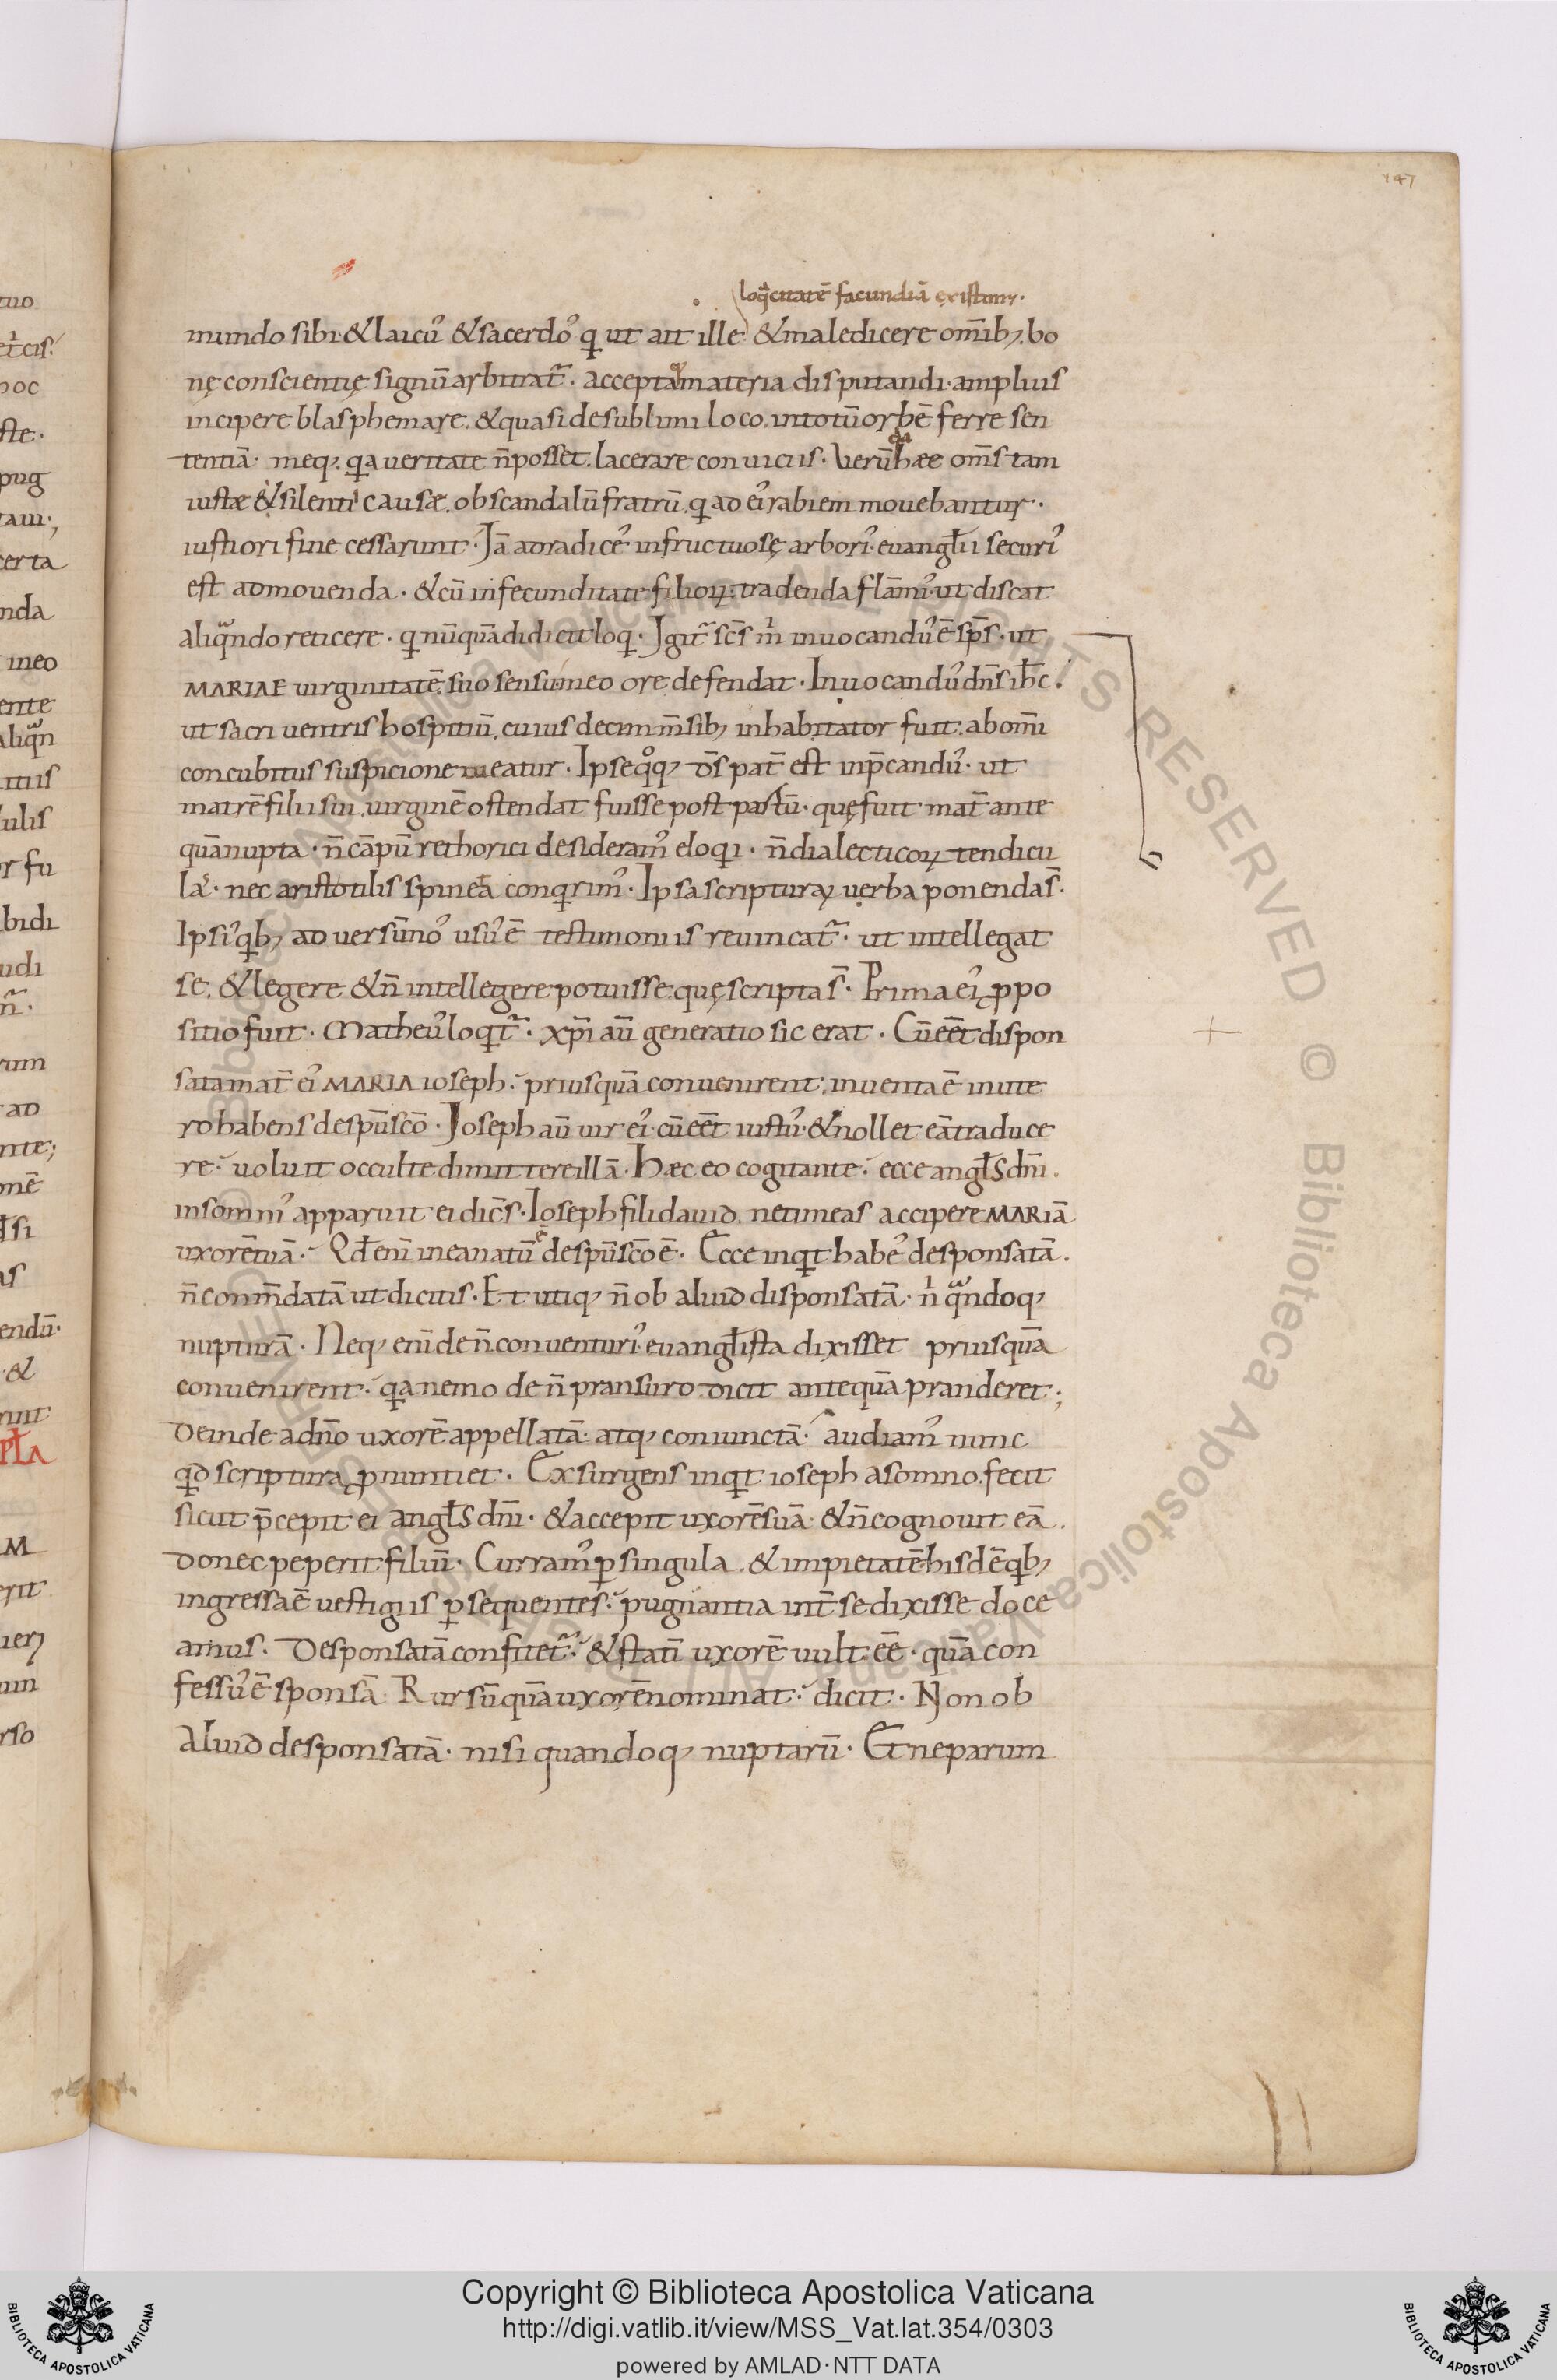 147
loq̄citatē facundiā existimꝰ.
mundo sibi·&laicꝰ &sacerdoꝰ q ut ait ille· &maledicere om̄ibꝫ. bo
nę conscientię signū arbitrat̄. acceptaqꝫ materia disputandi· amplius
incipere blasphemare. &quasi de sublimi loco. in totū orbē ferre sen
tentiā· meqꝫ. qa ueritate n̄ posset. lacerare conuiciis. Verū hæc om̄s tam
iustæ & silenti causæ. ob scandalū fratrū. q ad eiꝰ rabiem mouebantur.
iustiori fine cessarunt. Jā ad radiceꝰ infructuosę arboriꝰ euangłii securiꝰ
est admouenda. &cū infecunditate folioꝝ. tradenda flām̄iꝰ· ut discat
aliqͣndo reticere. q nūquā didicit loq. Igit̄ sc̄s m̄ inuocandꝰ ē sp̄s. ut
MARIAE uirginitatē. suo sensu. meo ore defendat. Inuocandꝰ dn̄s ih̄c.
ut sacri uentris hospitiū. cuius decem m̄sibꝫ inhabitator fuit. ab om̄i
concubitus suspicione tueatur. Ipse qͦqꝫ d̄s pat̄ est inp̄candꝰ. ut
matrē filii sui uirginē ostendat fuisse post partū. quę fuit mat̄ ante
quā nupta. n̄ cāpū rethorici desideramꝰ eloqi. n̄ dialecticoꝝ tendicu
laꝰ. nec aristotilis spineta conqrimꝰ. Ipsa scripturaꝝ uerba ponenda s̄.
Ipsiꝰ qbꝫ aduersū noꝰ usꝰ ē testimoniis reuincat̄. ut intellegat
se. & legere & n̄ intellegere potuisse. quę scripta s̄. Prima eiꝰ ꝓpo
sitio fuit. Matheꝰ loqt̄. xp̄i aū generatio sic erat. Cū eēt dispon
sata mat̄ eiꝰ MARIA ioseph. priusquā conuenirent. inuenta ē in ute
ro habens de sp̄u sc̄o. Joseph aū uir eiꝰ. cū eēt iustꝰ. & nollet eā traduce
re. uoluit occulte dimittere illā. Hæc eo cogitante. ecce angłs dn̄i.
in somniꝰ apparuit ei dic̄s. Ioseph fili dauid. ne timeas accipere MARIĀ
uxorē tuā. Qđ enī in ea natū ē de sp̄u sc̄o ē. Ecce inqt habeꝰ desponsatā.
n̄ com̄datā ut dicitis. Et utiqꝫ n̄ ob aliud disponsatā. n̄ qͣndoqꝫ
nupturā. Neqꝫ enī de n̄ conuenturiꝰ euangłista dixisset priusquā
conuenirent. qa nemo de n̄ pransuro dicit antequā pranderet;
Deinde a dn̄o uxorē appellatā. atqꝫ coniunctā. audiamꝰ nunc
qđ scriptura ꝓnuntiet. Exsurgens inqt ioseph a somno. fecit
sicut p̄cepit ei angłs dn̄i. & accepit uxorē suā. & n̄ cognouit eā.
Donec peperit filiū. Curramꝰ ꝑ singula. & impietatē hisdē qbꝫ
ingressa ē uestigiis ꝑsequentes. pugnantia int̄ se dixisse doce
amus. Desponsatā confitet̄. & statī uxorē uult eē. quā con
fessꝰ ē sponsā. Rursū quā uxorē nominat. dicit. Non ob
Aliud desponsatā. nisi quandoqꝫ nuptarū. Et ne parum
Copyright © Biblioteca Apostolica Vaticana
http://digi.vatlib.it/view/MSS_Vat.lat.354/0303
powered by AMLAD·NTT DATA